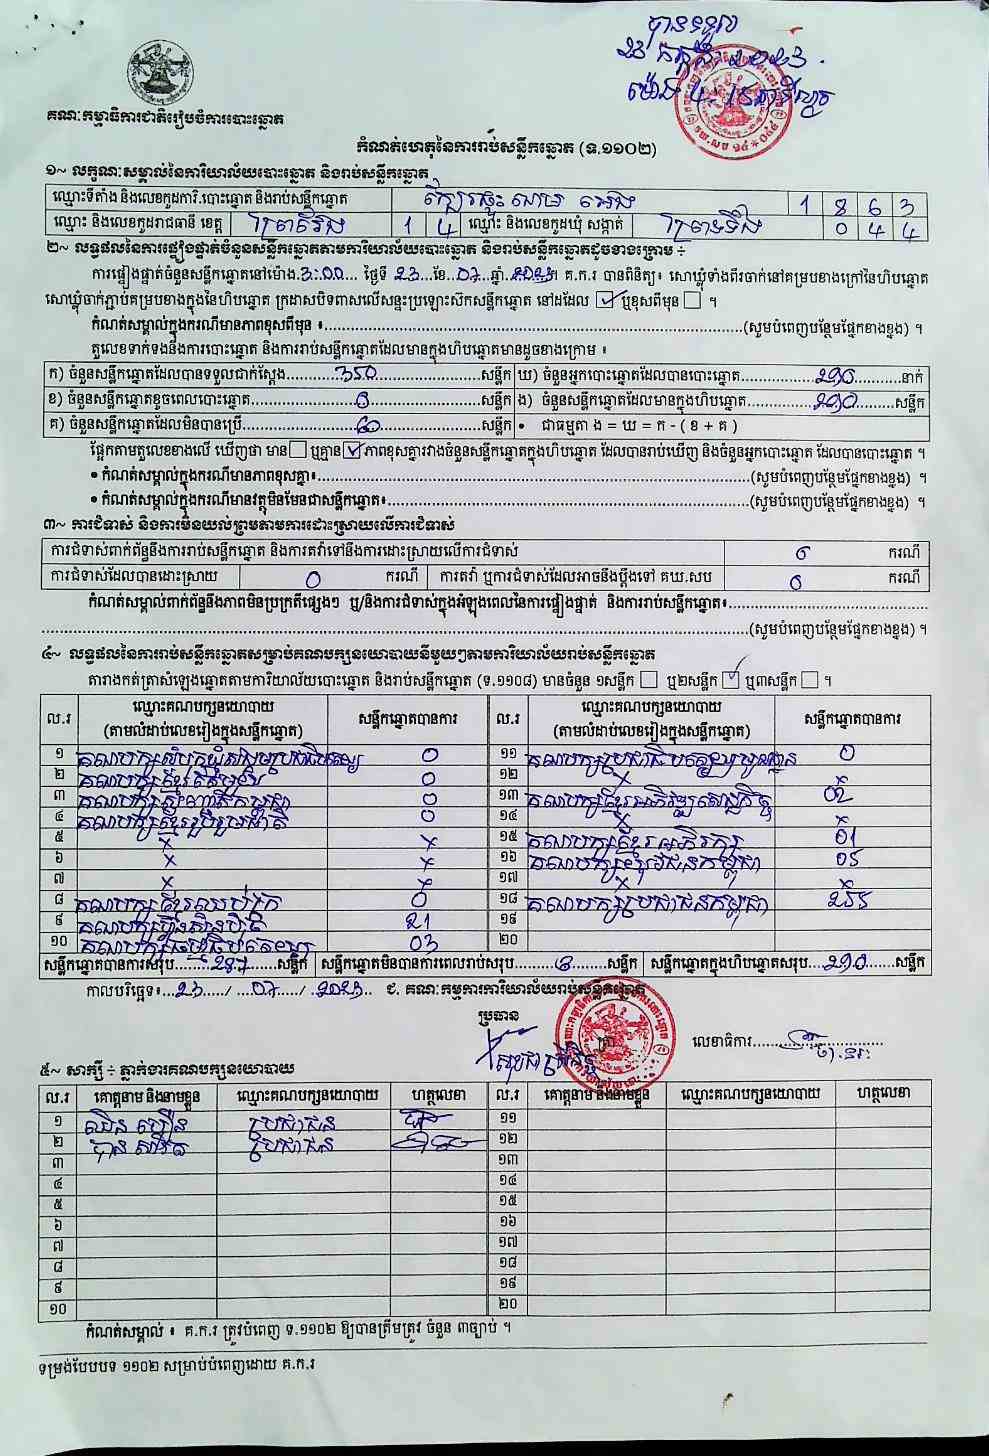 បានទទួល
23 កក្កដា 2023
ម៉ោង 4:
គណៈកម្មាធិការជាតិរៀបចំការបោះឆ្នោត
កំណត់ហេតុនៃការរាប់សន្លឹកឆ្នោត (ទ.១១០២)
១~ លក្ខណៈសម្គាល់នៃការិយាល័យបោះឆ្នោត និងរាប់សន្លឹកឆ្នោត
ឈ្មោះទីតាំង និងលេខកូដការិ.បោះឆ្នោត និងរាប់សន្លឹកឆ្នោត 1 8 6 3
ឈ្មោះ និងលេខកូដរាជធានី ខេត្ត ព្រៃវែង 1 4 ឈ្មោះ និងលេខកូដឃុំ សង្កាត់ ព្រៃទឹង 0 4 4
២~ លទ្ធផលនៃការផ្ទៀងផ្ទាត់ចំនួនសន្លឹកឆ្នោតតាមការិយាល័យបោះឆ្នោត និងរាប់សន្លឹកឆ្នោតដូចខាងក្រោម ÷
ការផ្ទៀងផ្ទាត់ចំនួនសន្លឹកឆ្នោតនៅម៉ោង.3:00... ថ្ងៃទី 23.ខែ.07.ឆ្នាំ.2023។ គ.ក.រ បានពិនិត្យ៖ សោឃ្លុំទាំងពីរចាក់នៅគម្របខាងក្រៅនៃហិបឆ្នោត
សោឃ្លុំចាក់ភ្ជាប់គម្របខាងក្នុងនៃហិបឆ្នោត ក្រដាសបិទពាសលើសន្ទះប្រឡោះស៊កសន្លឹកឆ្នោត នៅដដែល ☑ ឬខុសពីមុន ☐ ។
កំណត់សម្គាល់ក្នុងករណីមានភាពខុសពីមុន ៖...(សូមបំពេញបន្ថែមផ្នែកខាងខ្នង) ។
តួលេខទាក់ទងនឹងការបោះឆ្នោត និងការរាប់សន្លឹកឆ្នោតដែលមានក្នុងហិបឆ្នោតមានដូចខាងក្រោម ៖
ក) ចំនួនសន្លឹកឆ្នោតដែលបានទទួលជាក់ស្តែង...350...សន្លឹក ឃ) ចំនួនអ្នកបោះឆ្នោតដែលបានបោះឆ្នោត...290...នាក់
ខ) ចំនួនសន្លឹកឆ្នោតខូចពេលបោះឆ្នោត...0...សន្លឹក ង) ចំនួនសន្លឹកឆ្នោតដែលមានក្នុងហិបឆ្នោត...290...សន្លឹក
គ) ចំនួនសន្លឹកឆ្នោតដែលមិនបានប្រើ...60...សន្លឹក • ជាធម្មតា ង = ឃ = ក - ( ខ + គ )
ផ្អែកតាមតួលេខខាងលើ ឃើញថា មាន ☐ ឬគ្មាន ☑ ភាពខុសគ្នារវាងចំនួនសន្លឹកឆ្នោតក្នុងហិបឆ្នោត ដែលបានរាប់ឃើញ និងចំនួនអ្នកបោះឆ្នោត ដែលបានបោះឆ្នោត ។
• កំណត់សម្គាល់ក្នុងករណីមានភាពខុសគ្នា៖...(សូមបំពេញបន្ថែមផ្នែកខាងខ្នង) ។
• កំណត់សម្គាល់ក្នុងករណីមានវត្ថុមិនមែនជាសន្លឹកឆ្នោត៖...(សូមបំពេញបន្ថែមផ្នែកខាងខ្នង) ។
៣~ ការជំទាស់ និងការមិនយល់ព្រមតាមការដោះស្រាយលើការជំទាស់
ការជំទាស់ពាក់ព័ន្ធនឹងការរាប់សន្លឹកឆ្នោត និងការតវ៉ាទៅនឹងការដោះស្រាយលើការជំទាស់ 0 ករណី
ការជំទាស់ដែលបានដោះស្រាយ 0 ករណី ការតវ៉ា ឬការជំទាស់ដែលអាចនឹងប្តឹងទៅ គឃ.សប 0 ករណី
កំណត់សម្គាល់ពាក់ព័ន្ធនឹងភាពមិនប្រក្រតីផ្សេងៗ ឬ/និងការជំទាស់ក្នុងអំឡុងពេលនៃការផ្ទៀងផ្ទាត់ និងការរាប់សន្លឹកឆ្នោត៖...
...(សូមបំពេញបន្ថែមផ្នែកខាងខ្នង) ។
៤~ លទ្ធផលនៃការរាប់សន្លឹកឆ្នោតសម្រាប់គណបក្សនយោបាយនីមួយៗតាមការិយាល័យរាប់សន្លឹកឆ្នោត
តារាងកត់ត្រាសំឡេងឆ្នោតតាមការិយាល័យបោះឆ្នោត និងរាប់សន្លឹកឆ្នោត (ទ.១១០៨) មានចំនួន ១សន្លឹក ☐ ឬ២សន្លឹក ☑ ឬ៣សន្លឹក ☐ ។
ល.រ ឈ្មោះគណបក្សនយោបាយ (តាមលំដាប់លេខរៀងក្នុងសន្លឹកឆ្នោត) សន្លឹកឆ្នោតបានការ ល.រ ឈ្មោះគណបក្សនយោបាយ (តាមលំដាប់លេខរៀងក្នុងសន្លឹកឆ្នោត) សន្លឹកឆ្នោតបានការ
១ គណបក្សសំបុកឃ្មុំសង្គមប្រជាធិបតេយ្យ 0 ១១ គណបក្សប្រជាធិបតេយ្យមូលដ្ឋាន 0
២ គណបក្សខ្មែរតែមួយ 0 ១២ x x
៣ គណបក្សសញ្ជាតិកម្ពុជា 0 ១៣ គណបក្សខ្មែរអភិវឌ្ឍន៍សេដ្ឋកិច្ច 02
៤ គណបក្សខ្មែររួបរួមជាតិ 0 ១៤ x x
៥ x x ១៥ គណបក្សខ្មែរអភិរក្ស 01
៦ x x ១៦ គណបក្សយុវជនកម្ពុជា 05
៧ x x ១៧ x x
៨ គណបក្សខ្មែរឈប់ក្រ 0 ១៨ គណបក្សប្រជាជនកម្ពុជា 255
៩ គណបក្សហ៊្វុនស៊ិនប៉ិច 21 ១៩
១០ គណបក្សធម្មាធិបតេយ្យ 03 ២០
សន្លឹកឆ្នោតបានការសរុប...287...សន្លឹក សន្លឹកឆ្នោតមិនបានការពេលរាប់សរុប...3...សន្លឹក សន្លឹកឆ្នោតក្នុងហិបឆ្នោតសរុប...290...សន្លឹក
កាលបរិច្ឆេទ៖...23...../...07...../...2023.. ជ. គណៈកម្មការការិយាល័យរាប់សន្លឹកឆ្នោត
ប្រធាន
លេខាធិការ
៥~ សាក្សី ÷ ភ្នាក់ងារគណបក្សនយោបាយ
ល.រ គោត្តនាម និងនាមខ្លួន ឈ្មោះគណបក្សនយោបាយ ហត្ថលេខា ល.រ គោត្តនាម និងនាមខ្លួន ឈ្មោះគណបក្សនយោបាយ ហត្ថលេខា
១ ឈិន ហឿន ប្រជាជន ១១
២ បាន សារ៉េត ប្រជាជន ១២
៣ ១៣
៤ ១៤
៥ ១៥
៦ ១៦
៧ ១៧
៨ ១៨
៩ ១៩
១០ ២០
កំណត់សម្គាល់ ៖ គ.ក.រ ត្រូវបំពេញ ទ.១១០២ ឱ្យបានត្រឹមត្រូវ ចំនួន ៣ច្បាប់ ។
ទម្រង់បែបបទ ១១០២ សម្រាប់បំពេញដោយ គ.ក.រ